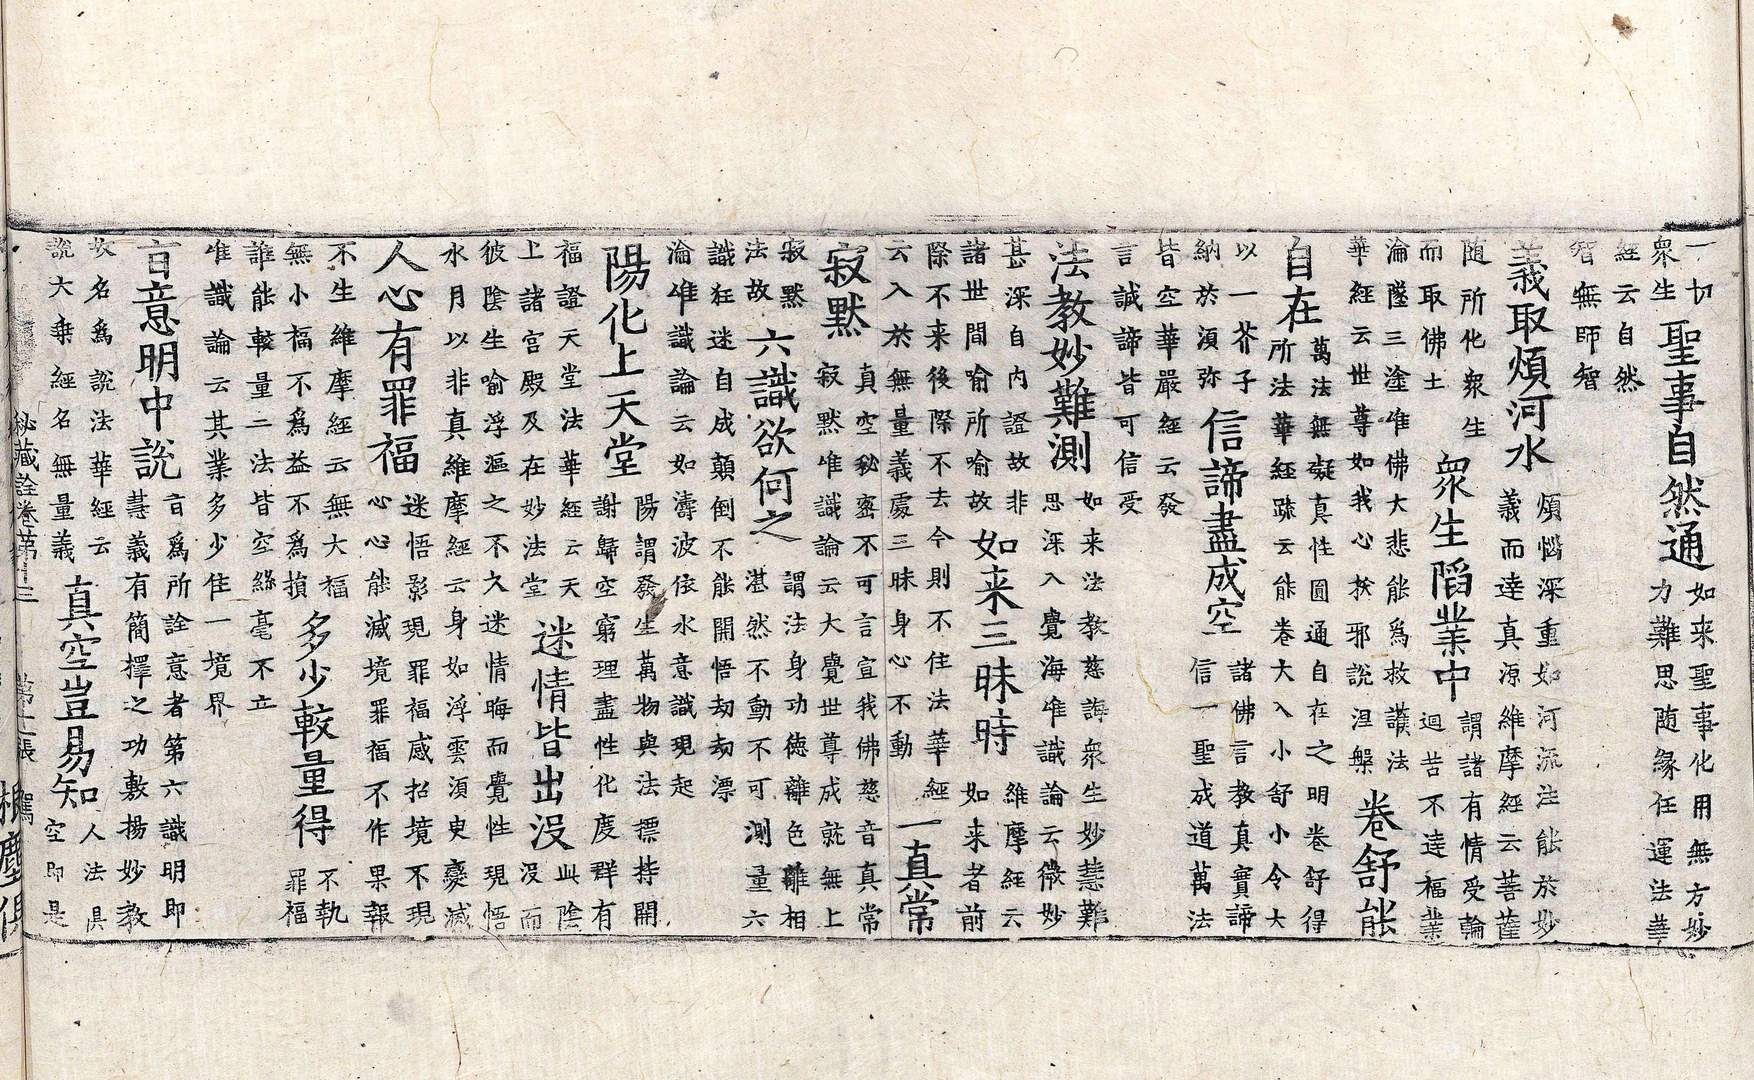 一切衆生聖事自然通如来聖事化用無方妙力難思随緣任運法華
經云自然智無師智
義取煩河水煩惱深重如河流注能於妙義而達真源維摩經云菩薩
随所化衆生而取佛土衆生陷業中謂諸有情受輪迴苦不達福業
淪墜三塗唯佛大悲能爲救護法華經云世尊如我心邪說涅槃卷舒能
自在萬法無礙真性圓通自在之明卷舒得所法華經䟽云能卷大入小舒小令大
以一芥子納於湏弥信諦盡成空諸佛言教真實諦信一聖成道萬法
皆空華嚴經云發言誠諦皆可信受
法教妙難測如来法教慈誨衆生妙慧難思深入覺海唯識論云微妙
甚深自内證故非諸世間喻所喻故如来三昧時維摩經云如来者前
際不来後際不去今則不住法華經云入於無量義處三昧身心不動一真常
寂黙真空秘密不可言宣我佛慈音真常寂黙唯識論云大覺世尊成就無上
寂黙法故六識欲何之謂法身功德離色離相湛然不動不可測量六
識狂迷自成顛倒不能開悟劫劫漂淪唯識論云如濤波依水意識現起
陽化上天堂陽謂發生萬物與法標持開謝歸空窮理盡性化度群有
福證天堂法華經云天上諸宫殿及在妙法堂迷情皆出没此陰没而
彼陰生喻浮漚之不久迷情晦而覺性現悟水月以非真維摩經云身如浮雲湏臾變滅
人心有罪福迷悟影現罪福感招境不現心心能滅境罪福不作果報
不生維摩經云無大福無小福不爲益不爲損多少較量得不執罪福
誰能較量二法皆空絲毫不立唯識論云其業多少住一境界
言意明中說言爲所詮意者第六識明即慧義有簡擇之功敷揚妙教
故名爲說法華經云說大乗經名無量義真空豈易知人法俱空即是
秘藏詮卷第十三 張 駕
根塵俱